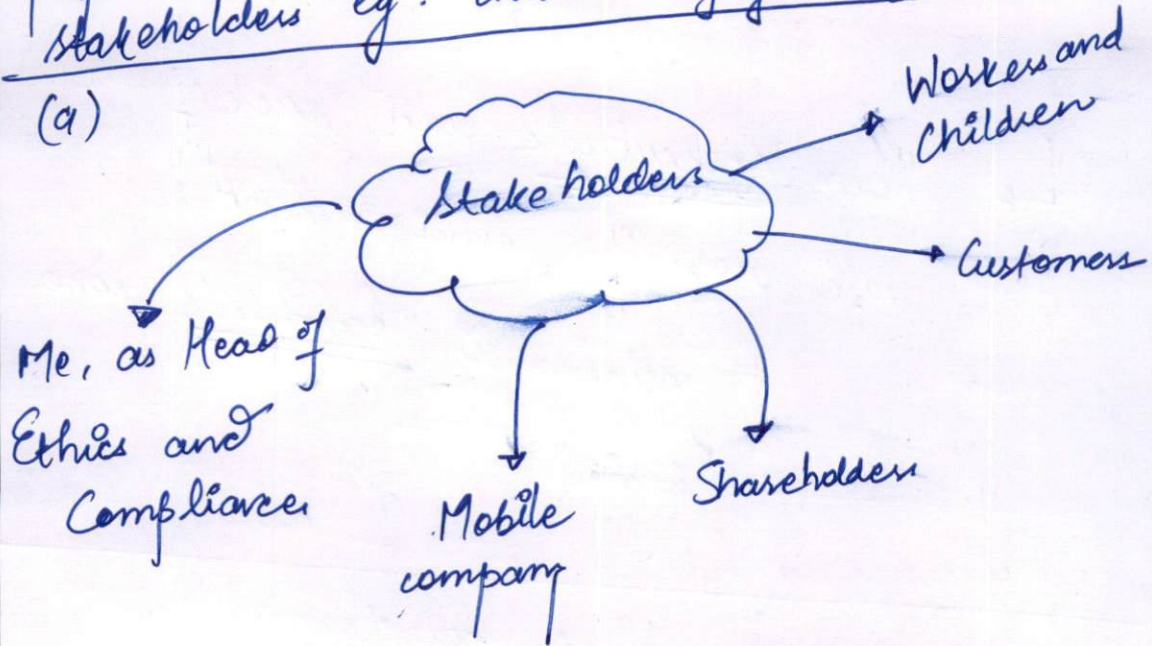 stakeholders eg.
(a)
Stakeholders
Workers and
Children
Customers
Me, as Head of
Ethics and
Compliance
Mobile
company
Shareholders